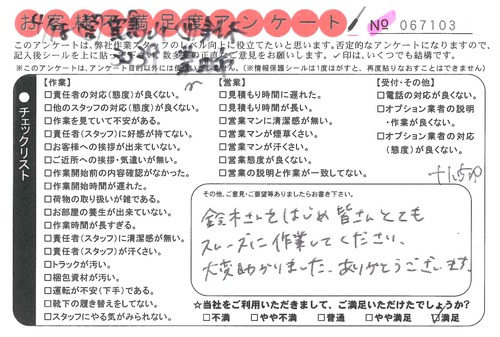 お客様不満足度アンケート
No 067103
このアンケートは、弊社作業スタッフのレベル向上に役立てたいと思います。否定的なアンケートになりますので、
記入後シールを上に貼っ 数多 正直 ご意見をお願いします。✓印は、いくつでも結構です。
※このアンケートは、アンケート目的以外には (※情報保護シールは1度はがすと、再度貼りなおすことはできません)
●チェックリスト
【作業】
□責任者の対応(態度)が良くない。
□他のスタッフの対応(態度)が良くない。
□作業を見ていて不安がある。
□責任者(スタッフ)に好感が持てない。
□お客様への挨拶が出来ていない。
□ご近所への挨拶・気遣いが無い。
□作業開始前の内容確認がなかった。
□作業開始時間が遅れた。
□荷物の取り扱いが雑である。
□お部屋の養生が出来ていない。
□作業時間が長すぎる。
□責任者(スタッフ)に清潔感が無い。
□責任者(スタッフ)が汗くさい。
□トラックが汚い。
□梱包資材が汚い。
□運転が不安(下手)である。
□靴下の履き替えをしてない。
□スタッフにやる気がみられない。
【営業】
□見積もり時間に遅れた。
□見積もり時間が長い。
□営業マンに清潔感が無い。
□営業マンが煙草くさい。
□営業マンが汗くさい。
□営業態度が良くない。
□営業の説明と作業が一致してない。
【受付・その他】
□電話の対応が良くない。
□オプション業者の説明
・作業が良くない。
□オプション業者の対応
(態度)が良くない。
その他、ご意見・ご要望等ありましたらお書き下さい。
鈴木さんをはじめ皆さんとても
スムーズに作業してくださり、
大変助かりました。ありがとうございます。
☆当社をご利用いただきまして、ご満足いただけたでしょうか?
□不満 □やや不満 □普通 □やや満足 ☑満足